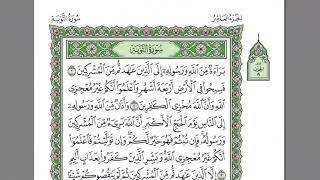 سُورَةُ التَّوْبَةِ
الجُزْءُ العَاشِرُ
سُورَةُ التَّوْبَةِ
بَرَآءَةٌ مِّنَ ٱللَّهِ وَرَسُولِهِۦٓ إِلَى ٱلَّذِينَ عَٰهَدتُّم مِّنَ ٱلْمُشْرِكِينَ ١
فَسِيحُوا۟ فِى ٱلْأَرْضِ أَرْبَعَةَ أَشْهُرٍ وَٱعْلَمُوٓا۟ أَنَّكُمْ غَيْرُ مُعْجِزِى
ٱللَّهِ وَأَنَّ ٱللَّهَ مُخْزِى ٱلْكَٰفِرِينَ ٢ وَأَذَٰنٌ مِّنَ ٱللَّهِ وَرَسُولِهِۦٓ
إِلَى ٱلنَّاسِ يَوْمَ ٱلْحَجِّ ٱلْأَكْبَرِ أَنَّ ٱللَّهَ بَرِىٓءٌ مِّنَ ٱلْمُشْرِكِينَ
وَرَسُولُهُۥ فَإِن تُبْتُمْ فَهُوَ خَيْرٌ لَّكُمْ وَإِن تَوَلَّيْتُمْ فَٱعْلَمُوٓا۟
أَنَّكُمْ غَيْرُ مُعْجِزِى ٱللَّهِ وَبَشِّرِ ٱلَّذِينَ كَفَرُوا۟ بِعَذَابٍ أَلِيمٍ
٣ إِلَّا ٱلَّذِينَ عَٰهَدتُّم مِّنَ ٱلْمُشْرِكِينَ ثُمَّ لَمْ يَنقُصُوكُمْ شَيْـًٔا